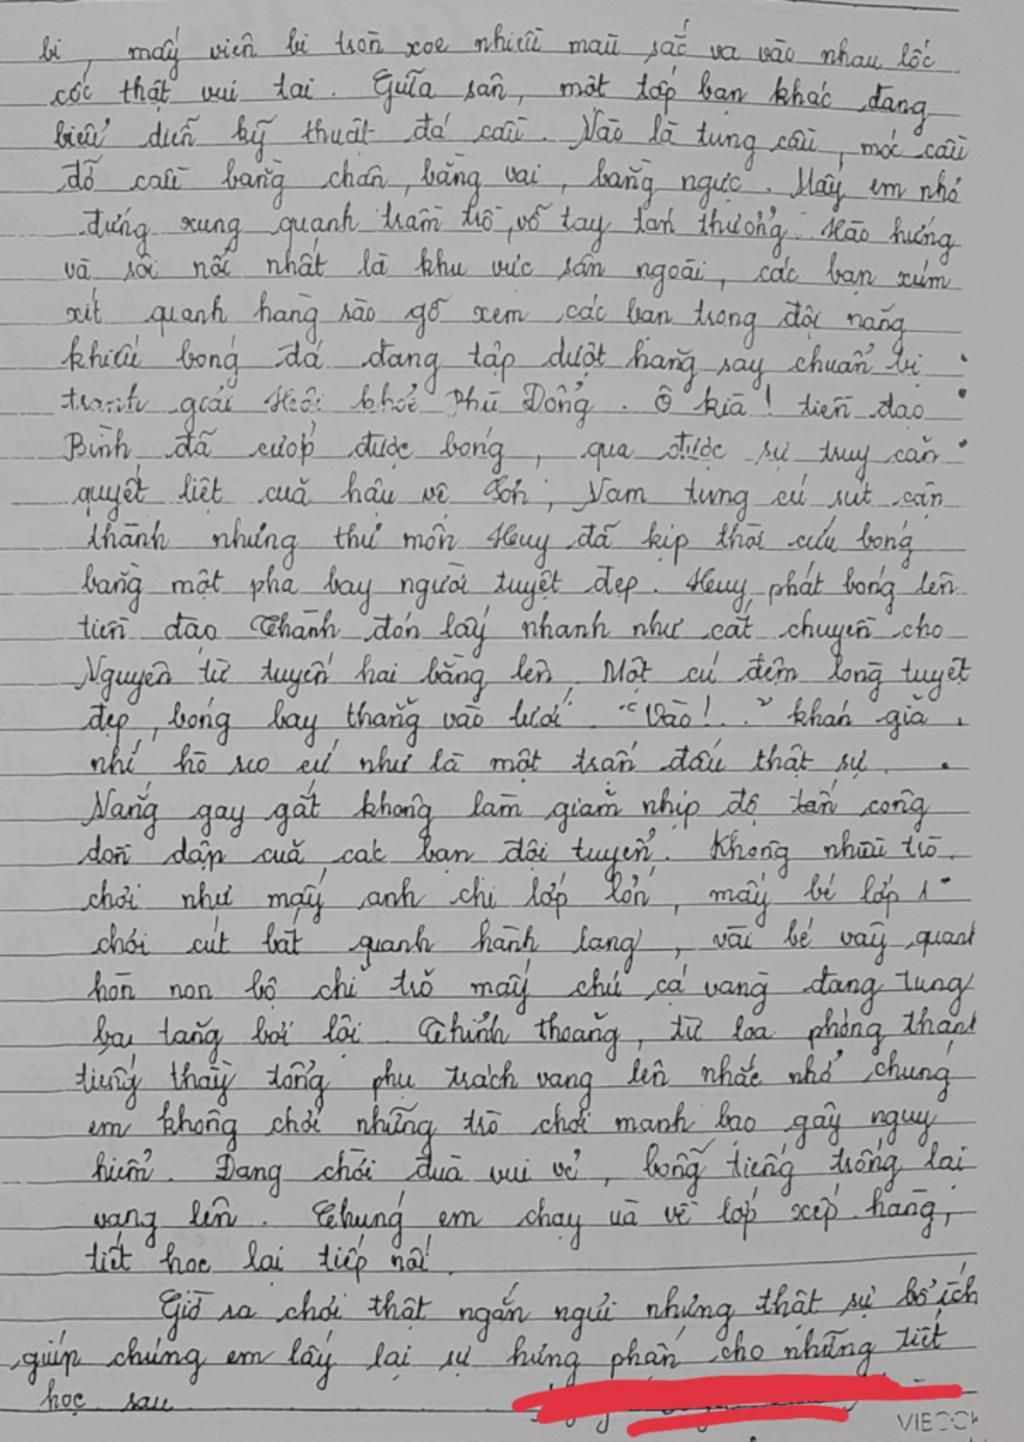 bi, mấy viên bi tròn xoe nhiều màu sắc va vào nhau lốc
cốc thật vui tai. Giữa sân, một tốp bạn khác đang
biểu diễn kỹ thuật đá cầu. Nào là tung cầu, móc cầu
đỡ cầu bằng chân, bằng vai, bằng ngực. Mấy em nhỏ
đứng xung quanh trầm trồ, vỗ tay tán thưởng. Hào hứng
và sôi nổi nhất là khu vực sân ngoài, các bạn xúm
xít quanh hàng rào gỗ xem các bạn trong đội năng
khiếu bóng đá đang tập dượt hăng say chuẩn bị
tranh giải Hội khoẻ Phù Đổng. Ồ kìa! tiền đạo
Bình đã cướp được bóng, qua được sự truy cản
quyết liệt của hậu vệ, Nam tung cú sút cận
thành nhưng thủ môn Huy đã kịp thời cứu bóng
bằng một pha bay người tuyệt đẹp. Huy phát bóng lên
tiền đạo Thành đón lấy nhanh như cắt chuyền cho
Nguyên từ tuyến hai băng lên. Một cú đệm lòng tuyệt
đẹp, bóng bay thẳng vào lưới. "Vào!.." khán giả
nhí hò reo cứ như là một trận đấu thật sự.
Nắng gay gắt không làm giảm nhịp độ tấn công
dồn dập của các bạn đội tuyển. Không nhiều trò
chơi như mấy anh chị lớp lớn, mấy bé lớp 1
chơi cút bắt quanh hành lang, vài bé vây quanh
hòn non bộ chỉ trỏ mấy chú cá vàng đang tung
tăng bơi lội. Thỉnh thoảng, từ loa phóng thanh
tiếng thầy tổng phụ trách vang lên nhắc nhở chúng
em không chơi những trò chơi mạnh bạo gây nguy
hiểm. Đang chơi đùa vui vẻ, bỗng tiếng trống lại
vang lên. Chúng em chạy ùa về lớp xếp hàng,
tiết học lại tiếp nối.
Giờ ra chơi thật ngắn ngủi nhưng thật sự bổ ích
giúp chúng em lấy lại sự hưng phấn cho những tiết
học sau